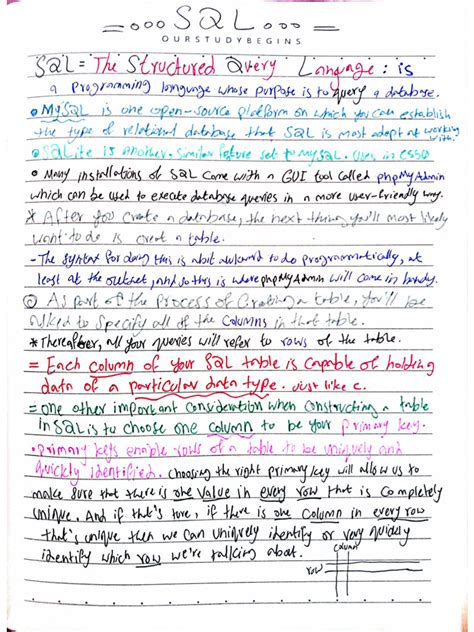 =ooo SQL ooo=
OURSTUDYBEGINS
SQL = The Structured Query Language: is
a Programming language whose purpose is to query a database.
• MySQL is one open-source platform on which you can establish
the type of relational database that SQL is most adept at working
with.
• SQLite is another. similar feature set to MySQL. Uses in CS50
• Many installations of SQL come with a GUI tool called phpMyAdmin
which can be used to execute database queries in a more user-friendly way.
* After you create a database, the next thing you'll most likely
want to do is creat a table.
- The syntax for doing this is abit awkward to do programmatically, at
least at the outset, and so this is where phpMyAdmin will come in handy.
As part of the Process of Creating a table, you'll be
asked to specify all of the columns in that table.
* Thereafter, all your queries will refer to rows of the table.
= Each column of your SQL table is capable of holding
data of a particular data type. Just like c.
= one other important consideration when constructing a table
in SQL is to choose one column to be your primary key.
• primary keys enable rows of a table to be uniquely and
quickly identified. choosing the right primary key will allow us to
make sure that there is one value in every row that is completely
unique. And if that's ture, if there is one column in every row
that's unique then we can uniqvely identify or very quickly
identify which row we're talking abat.
column
row